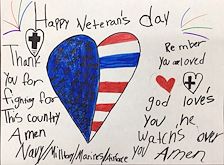 Happy Veteran's day
Thank
you for
fighting for
This country
Amen
Navy/Military/Marines/Airforce
Remember
you are loved
god loves
you he
watchs over
you Amen